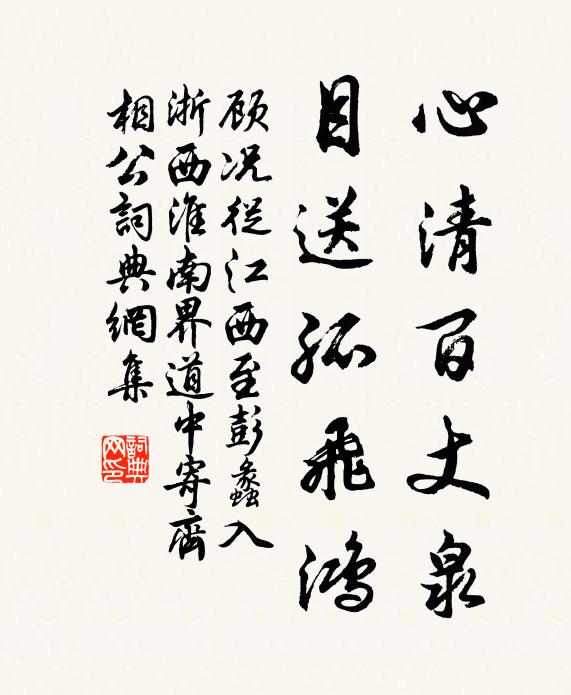 心清百丈泉
目送孤飛鴻
顾况從江西至彭蠡入
浙西淮南界道中寄齊
相公詞典網集
詞典
网印